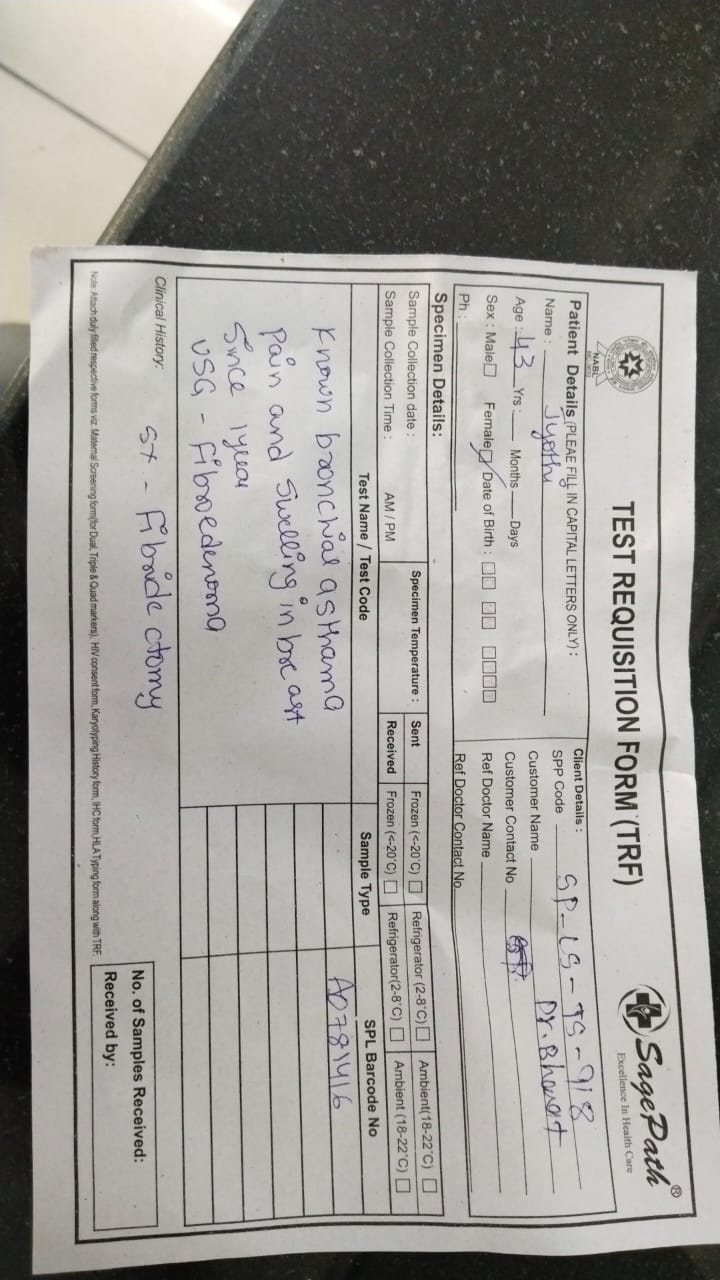 TEST REQUISITION FORM (TRF)
NABL
SagePath®
Excellence In Health Care
Patient Details (PLEAE FILL IN CAPITAL LETTERS ONLY) :
Name : Jyothi
Age : 43 Yrs : Months Days
Sex : Male Female Date of Birth :
Ph :
Client Details :
SPP Code SP-LS-TS-918
Customer Name Dr. Bharat
Customer Contact No
Ref Doctor Name
Ref Doctor Contact No
Specimen Details:
Sample Collection date :
Sample Collection Time : AM / PM
Specimen Temperature :
Sent Frozen (<-20°C) Refrigerator (2-8°C) Ambient(18-22°C)
Received Frozen (<-20°C) Refrigerator(2-8°C) Ambient (18-22°C)
Test Name / Test Code Sample Type SPL Barcode No
Known bronchial asthama A0781416
Pain and Swelling in breast
Since 1 year
USG - Fibroedenoma
Clinical History: Sx - Fibroidectomy
No. of Samples Received:
Received by:
Note: Attach duly filled respective forms viz. Maternal Screening form(for Dual, Triple & Quad markers), HIV consent form, Karyotyping History form, IHC form,HLA Typing form along with TRF.